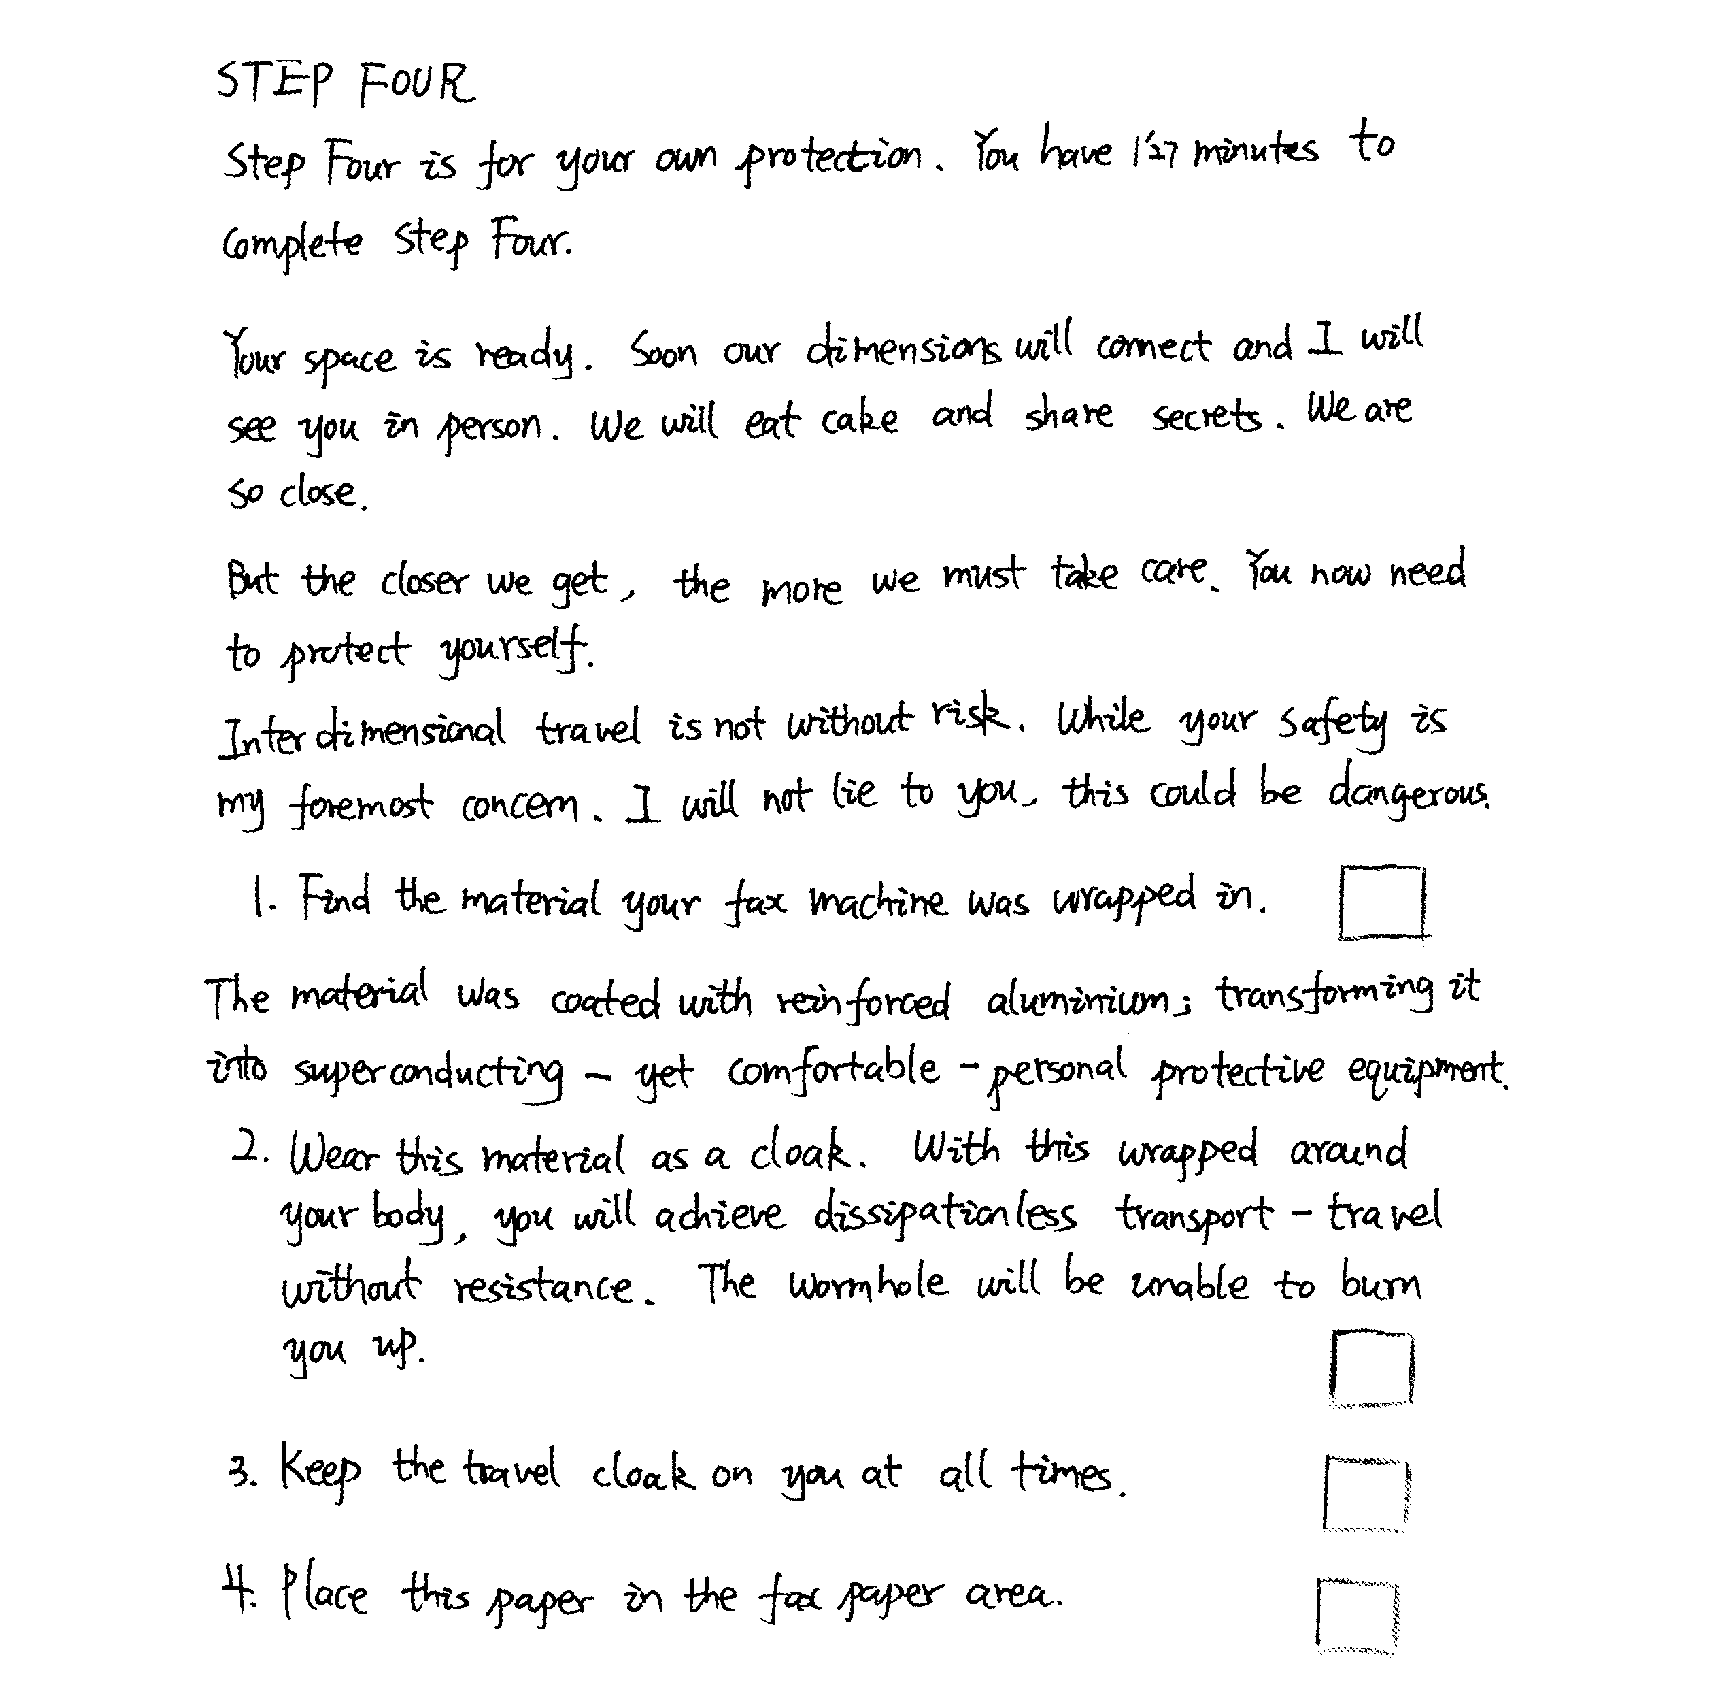 STEP FOUR
Step Four is for your own protection. You have 1'27 minutes to
complete Step Four.
Your space is ready. Soon our dimensions will connect and I will
see you in person. We will eat cake and share secrets. We are
so close.
But the closer we get, the more we must take care. You now need
to protect yourself.
Interdimensional travel is not without risk. While your safety is
my foremost concern. I will not lie to you, this could be dangerous.
1. Find the material your fax machine was wrapped in.
The material was coated with reinforced aluminium; transforming it
into superconducting - yet comfortable - personal protective equipment.
2. Wear this material as a cloak. With this wrapped around
your body, you will achieve dissipationless transport - travel
without resistance. The wormhole will be unable to burn
you up.
3. Keep the travel cloak on you at all times.
4. Place this paper in the fax paper area.